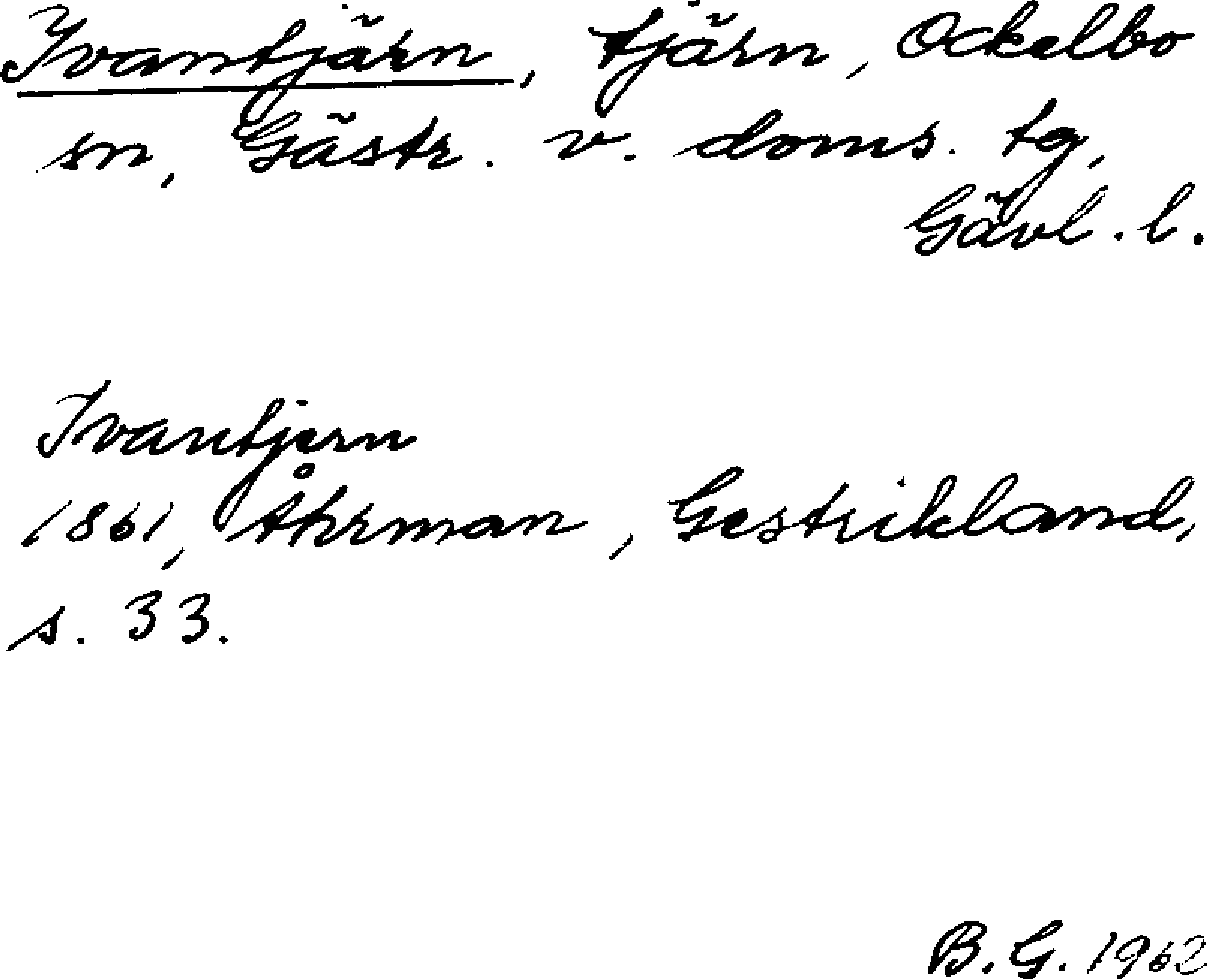 Ivantjärn, tjärn, Ockelbo
sn, Gästr. v. doms. tg,
Gävl. l.
Ivantjern
1861, Åhrman, Gestrikland,
s. 33.
B. G. 1962